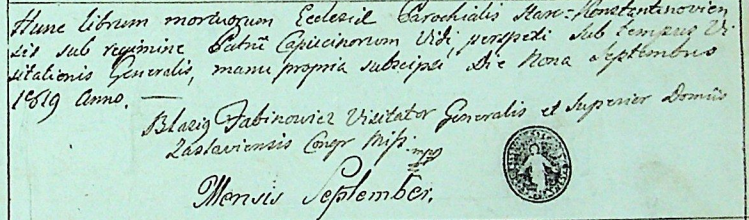 Hunc librum mortuorum Ecclesiæ Parochialis Staro-Konstantinovien
sis sub regimine Patrũ Capucinorum Vidi, perspexi sub tempus Vi
sitationis Generalis, manu propria subscripsi Die Nona Septembris
1819 Anno. —
Blasig Fabinowicz Visitator Generalis et Superior Domus
Zaslaviensis Congr Miss. mpp
Mensis September.